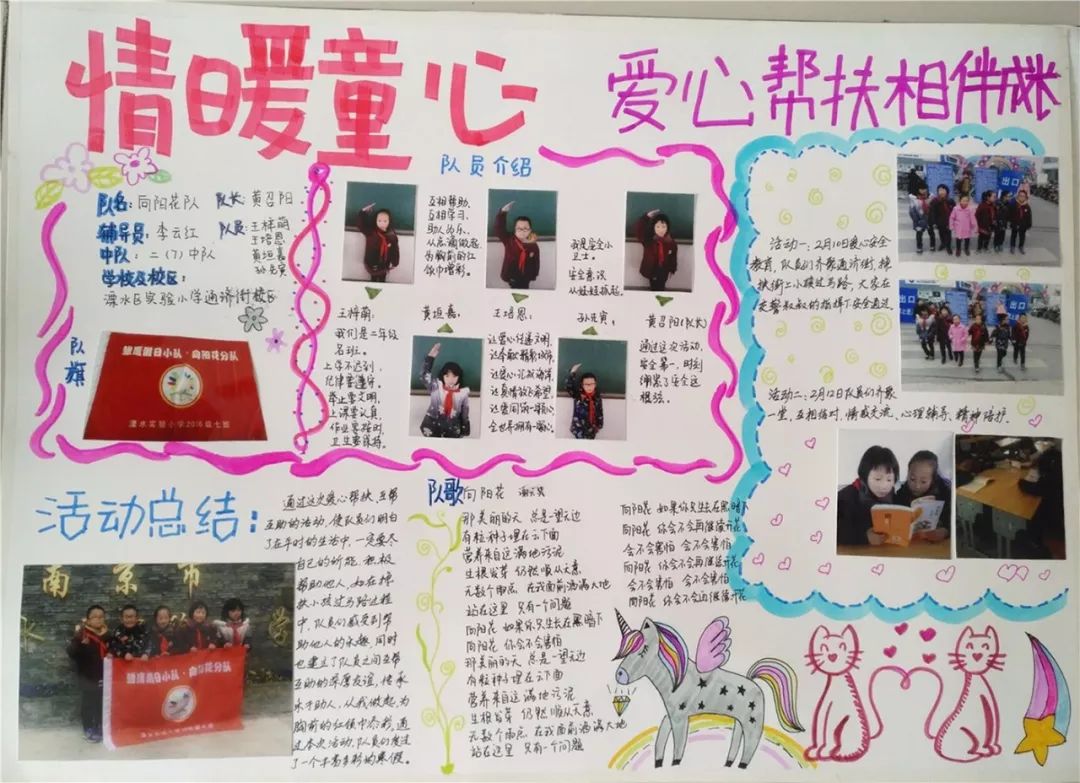 情暖童心
爱心帮扶相伴成长
队名：向阳花队 队长：黄召阳
辅导员：李云红 队员：王梓萌
王培恩
黄垣嘉
中队：二（7）中队
学校及校区：
溧水区实验小学通济街校区
队旗
假日小队·向阳花分队
溧水实验小学2016级七班
队员介绍
互相帮助，
互相学习，
助人为乐，
从点滴做起，
为胸前的红
领巾增彩。
我是安全小
卫士。
安全意识
从娃娃抓起。
王梓萌：
我们是二年级
七班。
上学不迟到，
纪律要遵守。
举止要文明，
上课要认真，
作业要按时，
卫生要保持。
黄垣嘉：
王培恩：
让爱心传递文明，
让爱心汇成海洋，
让真情放飞希望，
黄召阳（队长）
通过这次活动，
安全第一，时刻
绷紧了安全这
根弦。
出口
出口
活动一：2月10日爱心安全
教育，队员们齐聚通济街，搀
扶街上小孩过马路，大家在
交警叔叔的指挥下安全通过。
活动二：2月12日队员们齐聚
一堂，互相结对，情感交流，心理辅导，精神培护。
活动总结：
通过这次爱心帮扶，互帮
互助的活动，使队员们明白
了在平时的生活中，一定要尽
自己的所能，积极
帮助他人，如在搀
扶小孩过马路过程
中，队员们感受到帮
助他人的乐趣，同时
也建立了队员之间互帮
互助的深厚友谊，传承
乐于助人，从我做起，为
胸前的红领巾添彩，通
过本次活动，队员们度过
了一个丰富多彩的寒假。
南京市
水 学
假日小队·向阳花分队
队歌 向阳花
那美丽的天 总是一望无边
有粒种子埋在云下面
营养来自这满地污泥
生根发芽 仍然顺从天意
无数个雨点 在我面前洒满大地
站在这里 只有一个问题
向阳花 如果你只生长在黑暗下
向阳花 你会不会害怕
那美丽的天 总是一望无边
有粒种子埋在云下面
营养来自这满地污泥
生根发芽 仍然顺从天意
无数个雨点 在我面前洒满大地
站在这里 只有一个问题
向阳花 如果你只生长在黑暗下
向阳花 你会不会再继续开花
会不会害怕 会不会害怕
向阳花 你会不会再继续开花
会不会害怕 会不会害怕
向阳花 你会不会再继续开花